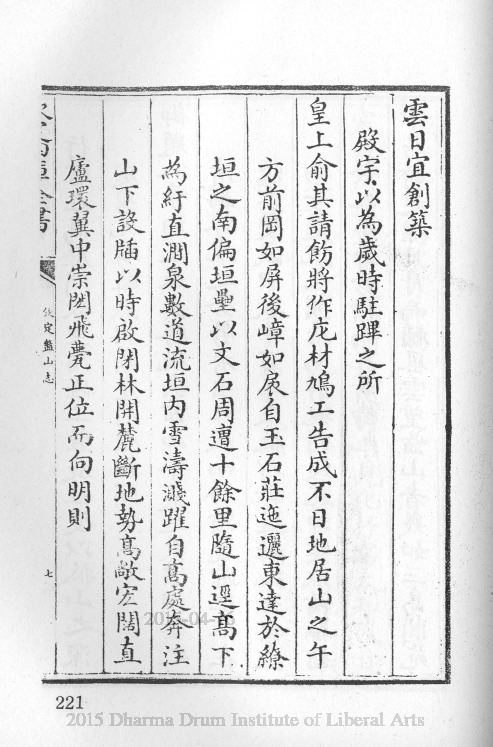 雲日宜創築
殿宇以為歲時駐蹕之所
皇上俞其請飭將作庀材鳩工告成不日地居山之午
方前岡如屏後嶂如扆自玉石莊迤邐東達於繚
垣之南偏垣壘以文石周遭十餘里隨山逕高下
為紆直澗泉數道流垣内雪濤濺躍自高處奔注
山下設牐以時啟閉林開麓斷地勢高敞宏闊直
廬環翼中崇閎飛甍正位而向明則
全書
欽定盤山志
七
221
2015 Dharma Drum Institute of Liberal Arts